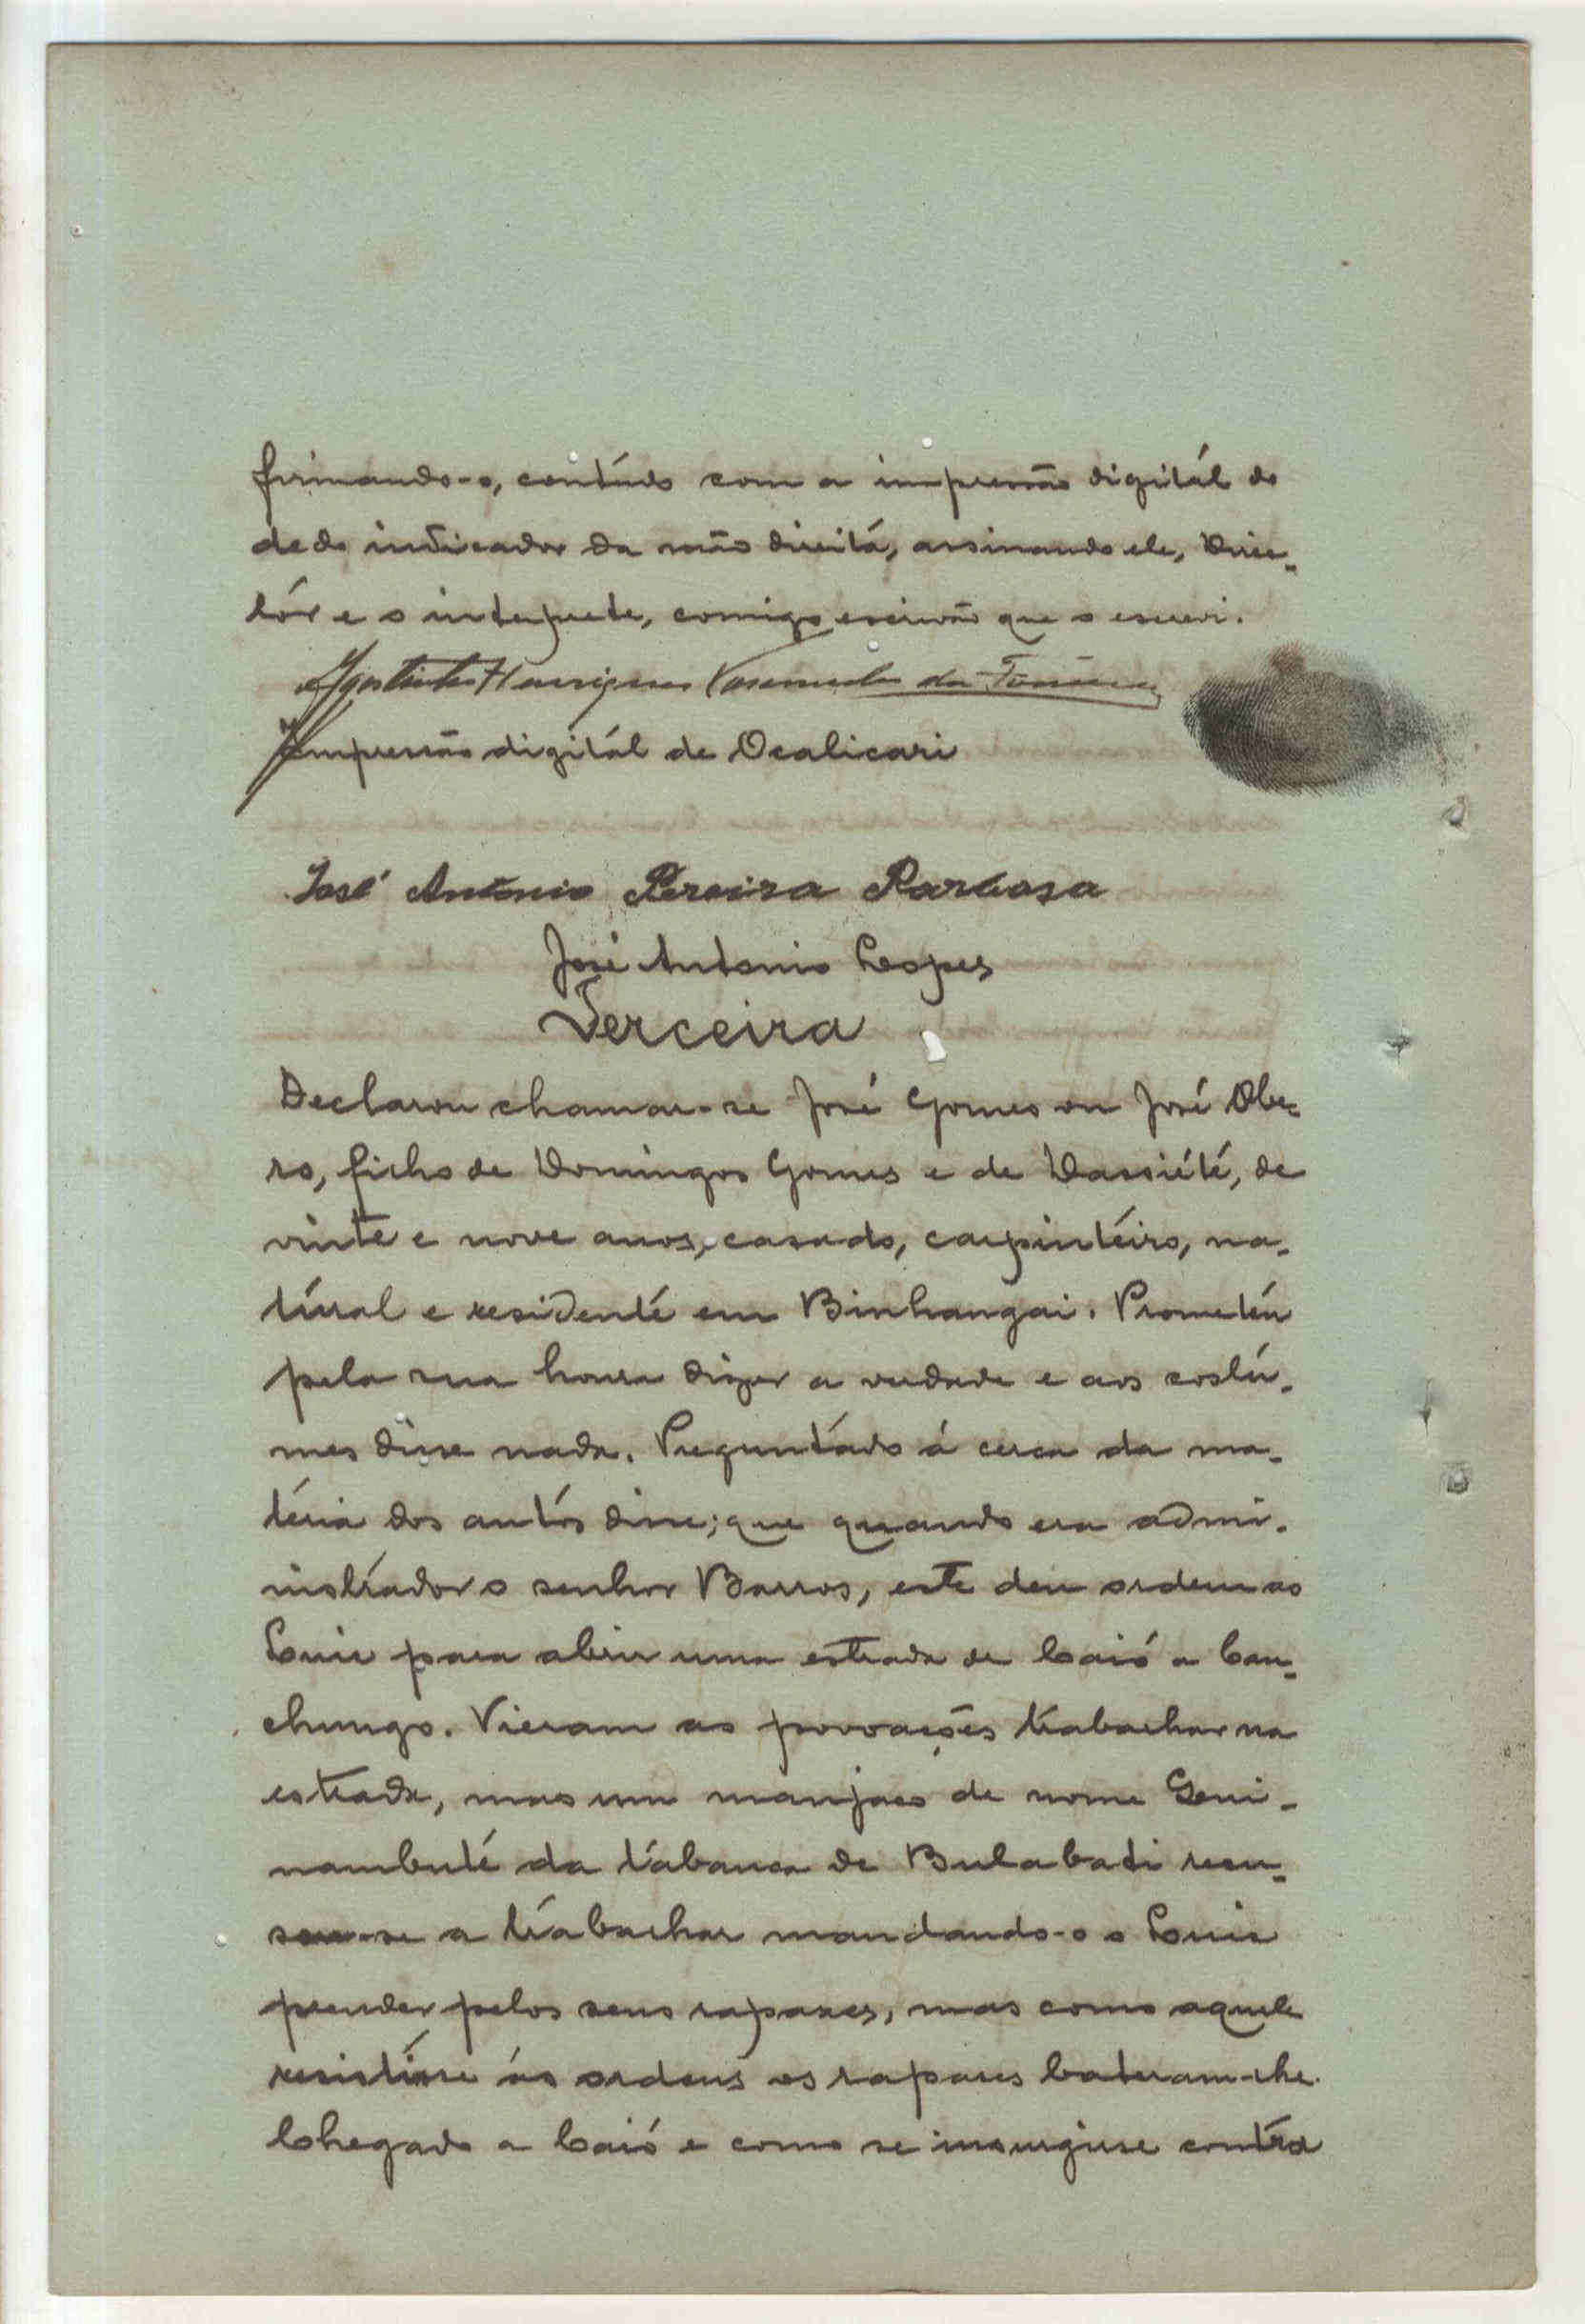 firmando-o, contúdo com a impressão digitál do
dedo indicador da mão direitá, assinando ele, Direc-
tór e o interprete, comigo escrivão que o escrevi.
Agostinho Henriques Vasconcelos da
Impressão digitál de Ocalicari
José António Pereira Barbosa
José Antonio Lopes
Terceira
Declarou chamar-se José Gomes ou José Obe-
ro, filho de Domingos Gomes e de Dassiété, de
vinte e nove anos, casado, carpintéiro, na-
túral e residenté em Binhangai. Prometéu
pela sua honra dizer a verdade e aos costú-
mes disse nada. Preguntádo á cerca da ma-
téria dos autós disse; que quando era admi-
nistrádor o senhor Barros, este deu ordem ao
Luis para abrir uma estrada de Caió a Can-
chungo. Vieram as povoações trabalhar na
estrada, mas um manjaco de nome Geni-
nambuté da tábanca de Bulabati recu-
sou-se a trabalhar mandando-o o Luis
prender pelos seus rapazes, mas como aquele
resistisse ás ordens os rapazes bateram-lhe.
Chegado a Caió e como se insurgisse contra